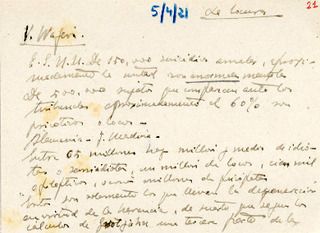 5/4/21
La locura
21
V. Wafesi
E.S.U.U. De 150,000 suicidios anuales, aproxi-
madamente la mitad son anormales mentales
De 500.000 sujetos que comparecen ante los
tribunales aproximadamente el 60% son
psicóticos o locos.
Alemania - J. Medina -
Entre 65 millones hay millón y medio de idio-
tas o semiidiotas, un millón de locos, cien mil
epilépticos, varios millones de psicópatas
son solamente los que llevan la degeneración
en virtud de la herencia, de suerte que según los
cálculos de una tercera parte de la